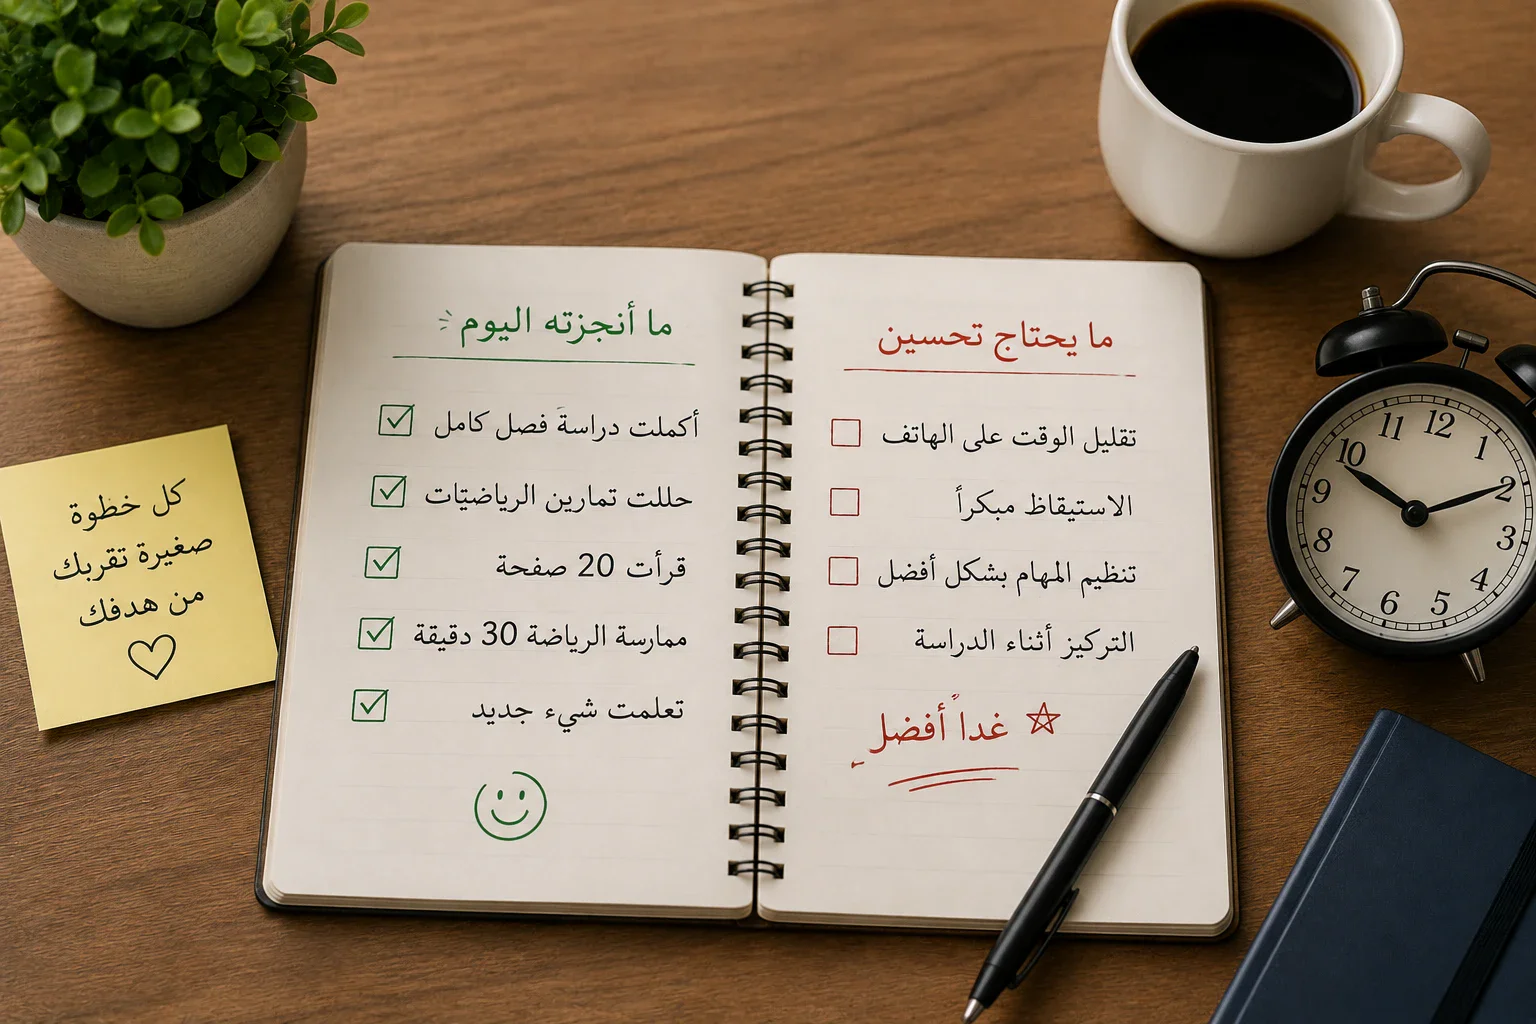 ما أنجزته اليوم
أكملت دراسة فصل كامل
حللت تمارين الرياضيات
قرأت 20 صفحة
ممارسة الرياضة 30 دقيقة
تعلمت شيء جديد
ما يحتاج تحسين
تقليل الوقت على الهاتف
الاستيقاظ مبكراً
تنظيم المهام بشكل أفضل
التركيز أثناء الدراسة
غداً أفضل
كل خطوة
صغيرة تقربك
من هدفك
12
1
2
3
4
5
6
7
8
9
10
11